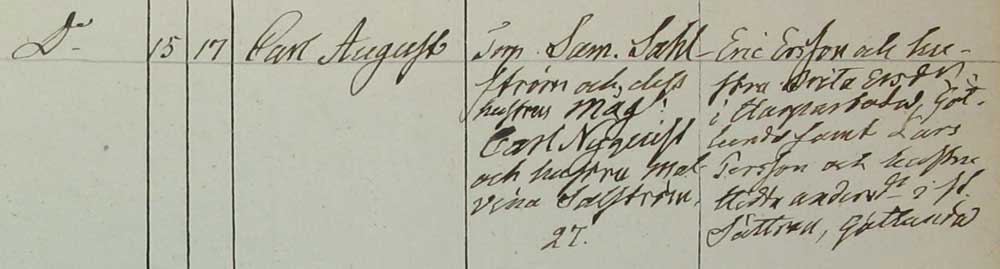 Do 15 17 Carl August
Torp. Sam. Sahl-
ström och dess
hustrus Måg:
Carl Nyquist
och hustru Mal-
vina Salström.
27.
Eric Ersson och hu-
stru Brita Ersdr,
i Göt-
lunda samt Lars
Persson och hustru
Anders Dr i fl.
Sättran, Götlunda